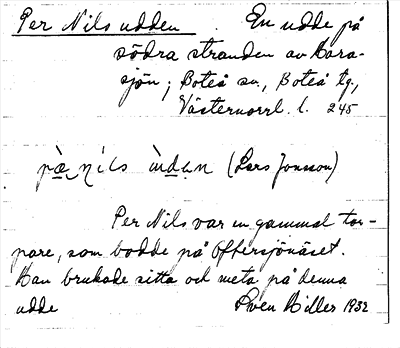 Per Nils udden. En udde på
södra stranden av Hora-
sjön; Boteå sn, Boteå tg,
Västernorrl. l. 245
nils (Lars Jonsson)
Per Nils var en gammal tor-
pare, som bodde på Offersjönäset.
Han brukade sitta och meta på denna
udde Sven Hiller 1932